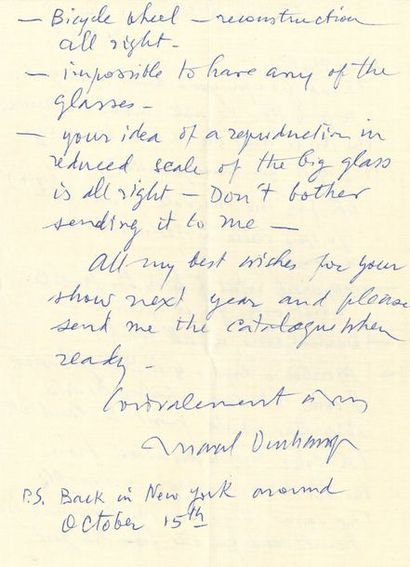 — Bicycle wheel — reconstruction
all right -
— impossible to have any of the
glasses -
— your idea of a reproduction in
reduced scale of the big glass
is all right — Don't bother
sending it to me —
All my best wishes for your
show next year and please
send me the catalogue when
ready -
Cordialement
Marcel Duchamp
P.S. Back in New York around
October 15th